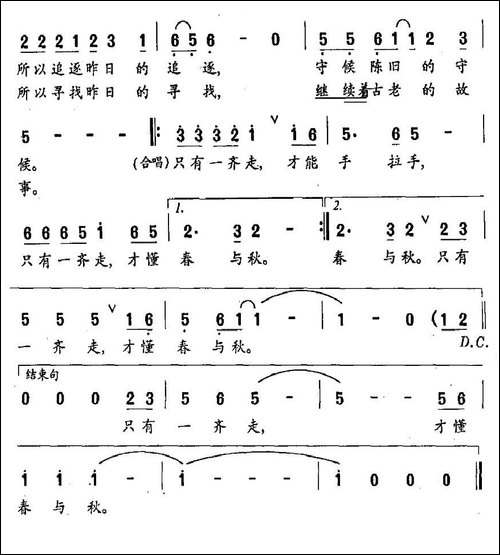 2 2 2 1 2 3 1 | 6 5 6 - 0 | 5 5 6 1 1 2 3 |
所以追逐昨日的追逐, 守候陈旧的守
所以寻找昨日的寻找, 继续着古老的故
5 - - - ‖: 3 3 3 2 1 ∨ 1 6 | 5· 6 5 - |
候。 (合唱)只有一齐走, 才能手拉手,
事。
1. 2.
6 6 6 5 1 6 5 | 2· 3 2 - :‖ 2· 3 2 ∨ 2 3 |
只有一齐走, 才懂春与秋。 春与秋。只有
5 5 5 ∨ 1 6 | 5 6 1 1 - | 1 - 0 (1 2 ‖
一齐走, 才懂春与秋。 D.C.
结束句
0 0 0 2 3 | 5 6 5 - | 5 - - 5 6 |
只有一齐走, 才懂
1 1 1 - | 1 - - - | 1 0 0 0 ‖
春与秋。